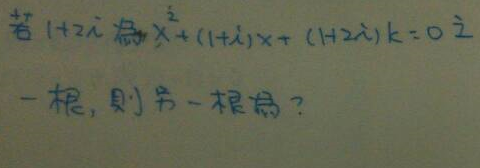 若 1+2i 為 x²+(1+i)x+(1+2i)k=0 之
一根, 則另一根為?